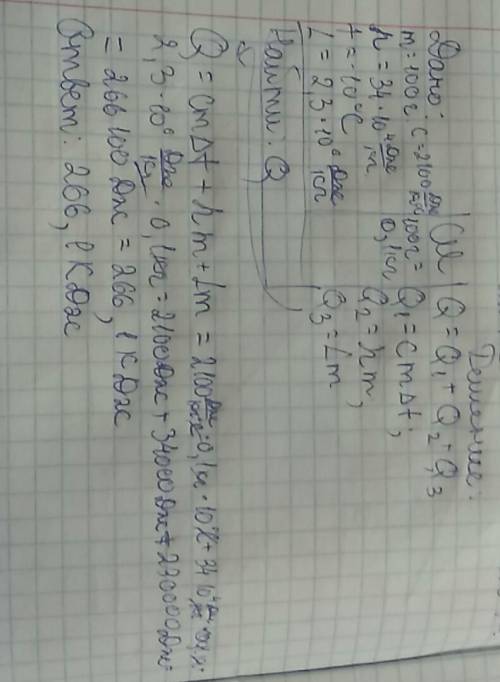 Решение:
Дано: | СИ | Q = Q₁ + Q₂ + Q₃
m = 100г c = 2100 Дж/кг°C 100г = 0,1кг Q₁ = cmΔt;
λ = 34·10⁴ Дж/кг Q₂ = λm,
t = -10°C Q₃ = Lm
L = 2,3·10⁶ Дж/кг
Найти: Q
Q = cmΔt + λm + Lm = 2100 Дж/кг°C · 0,1кг · 10°C + 34·10⁴ Дж/кг · 0,1кг +
2,3·10⁶ Дж/кг · 0,1кг = 2100Дж + 34000Дж + 230000Дж =
= 266100 Дж = 266,1 КДж
Ответ: 266,1 КДж